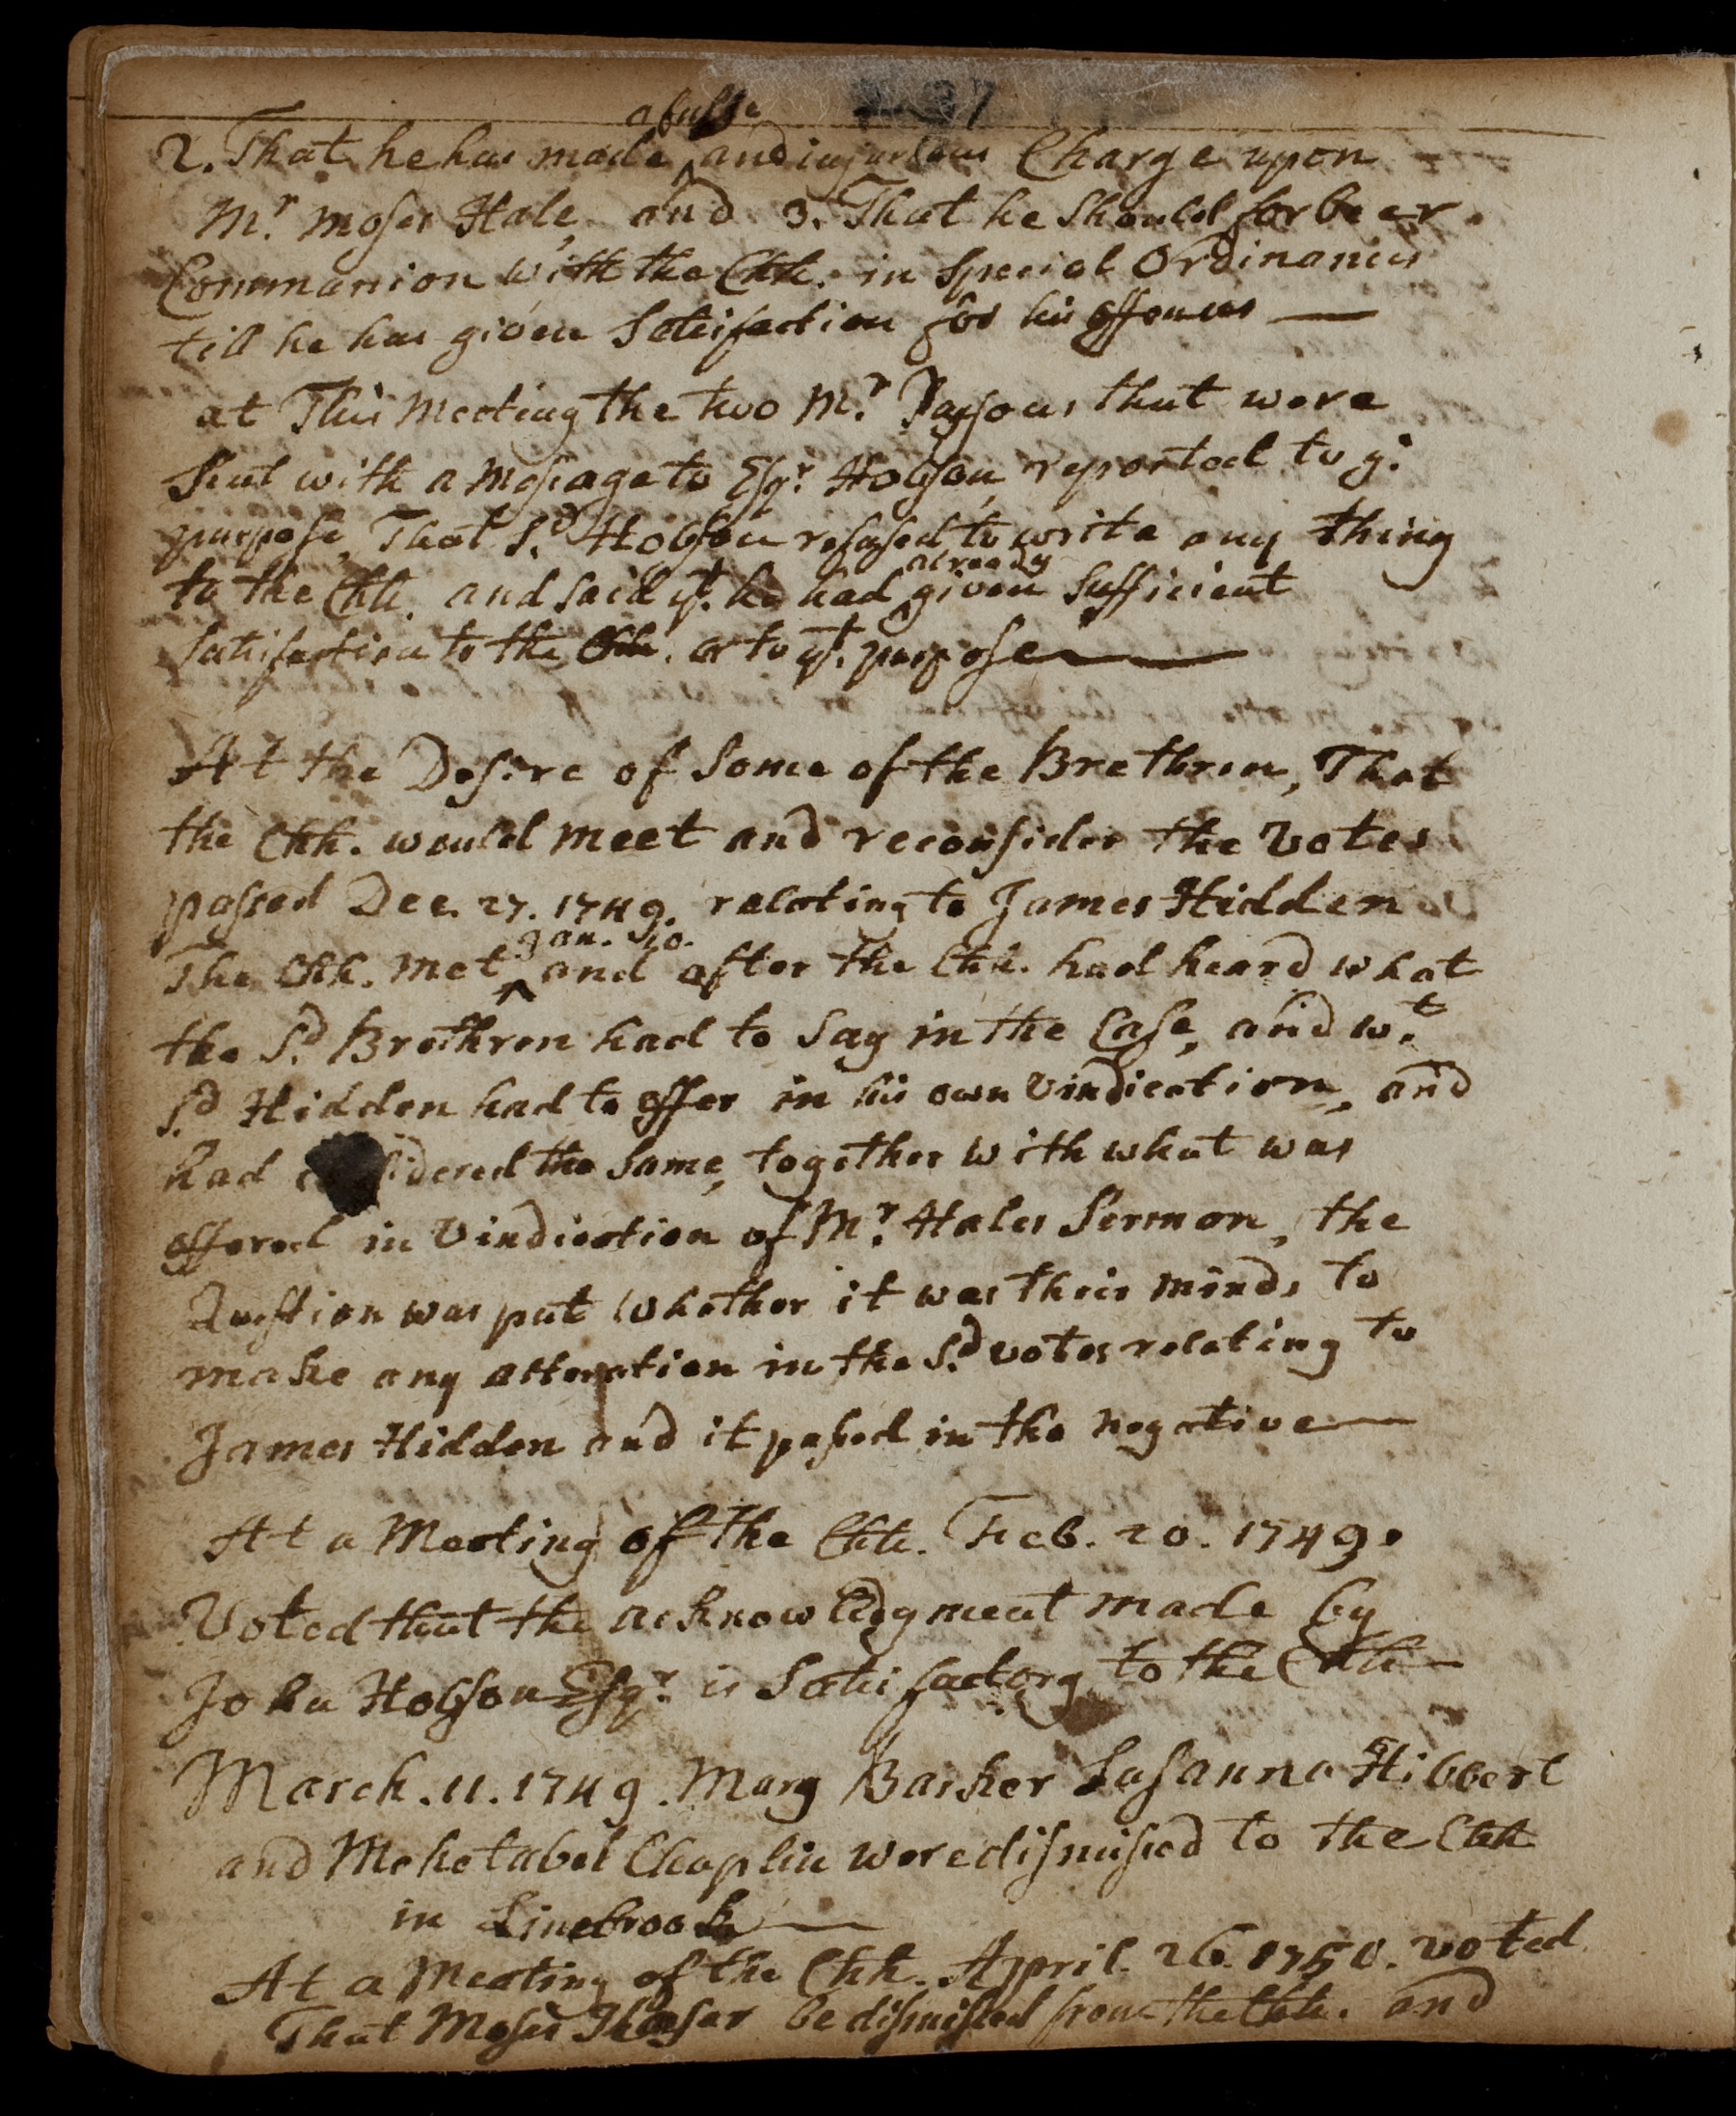 37
2. That he has made ^a false and injurious Charge upon
Mr. Moses Hale, and 3. That he should forbear
Communion with the Chh. in special Ordinances
till he has given Satisfaction for his offences —
at This Meeting the two Mr. Paysons that were
sent with a Message to Esqr. Hobson, reported to ye.
purpose, That sd. Hobson refused to write any thing
to the Chh. and said yt. he had ^already given sufficient
satisfaction to the Chh. or to yt. purpose —
At the Desire of some of the Brethren, That
the Chh. would meet and reconsider the Votes
passed Dec. 27. 1749. relating to James Hidden
The Chh. met ^Jan. 10. and after the Chh. had heard what
the sd. Brethren had to say in the Case, and wt.
sd. Hidden had to offer in his own Vindication, and
had considered the same, together with what was
offered in Vindication of Mr. Hales Sermon, the
Question was put Whether it was their minds to
make any alteration in the sd. votes relating to
James Hidden and it passed in the negative —
At a Meeting of the Chh. Feb. 20. 1749.
Voted that the acknowledgment made by
John Hobson Esqr. is Satisfactory to the Chh —
March. 11. 1749. Mary Barker Susanna Hibbert
and Mehetabel Chaplin were dismissed to the Chh
in Linebrook —
At a Meeting of the Chh. April. 26. 1750. voted
That Moses be dismissed from the Chh. and